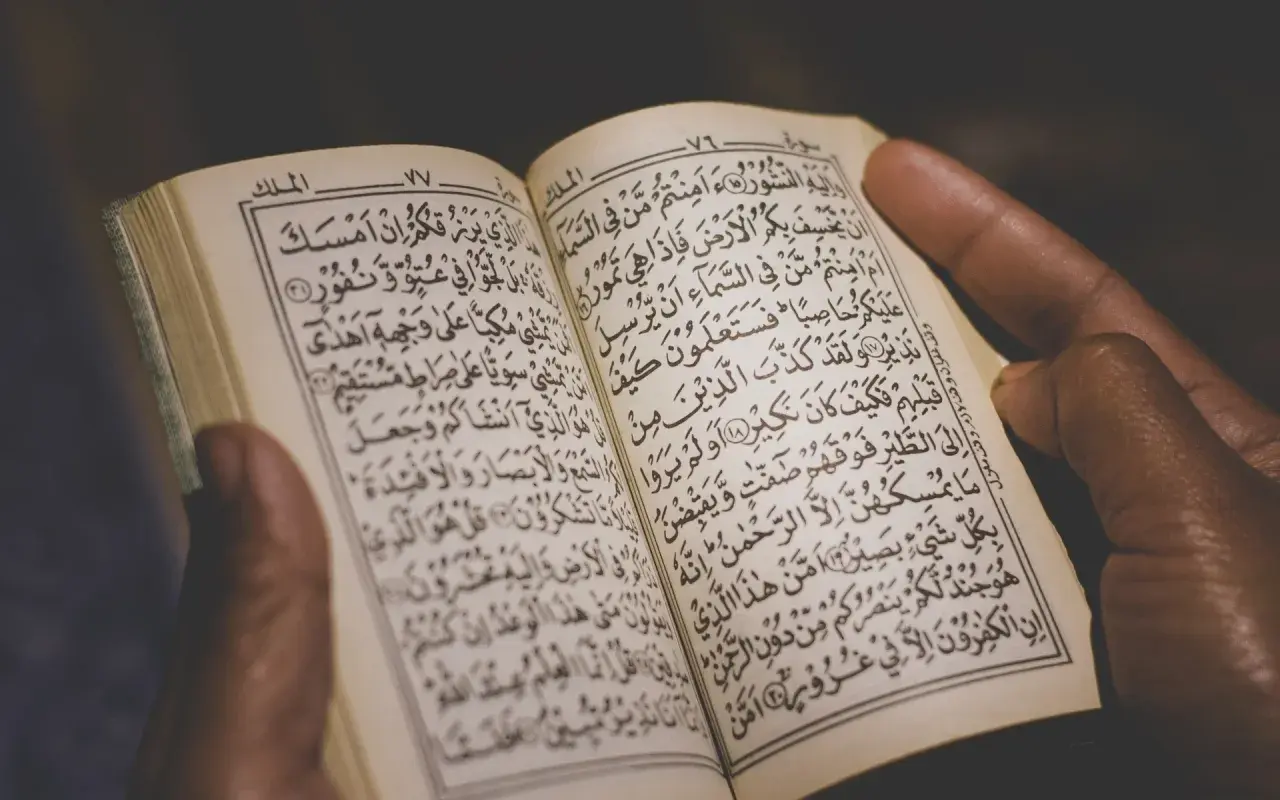 سورة ٧٦ الملك
وَاِلَيْهِ النُّشُوْرُ ۝١٥ ءَاَمِنْتُمْ مَّنْ فِي السَّمَآءِ
اَنْ يَّخْسِفَ بِكُمُ الْاَرْضَ فَاِذَا هِيَ تَمُوْرُ ۝١٦
اَمْ اَمِنْتُمْ مَّنْ فِي السَّمَآءِ اَنْ يُّرْسِلَ
عَلَيْكُمْ حَاصِبًا ؕ فَسَتَعْلَمُوْنَ كَيْفَ
نَذِيْرِ ۝١٧ وَلَقَدْ كَذَّبَ الَّذِيْنَ مِنْ
قَبْلِهِمْ فَكَيْفَ كَانَ نَكِيْرِ ۝١٨ اَوَلَمْ يَرَوْا
اِلَى الطَّيْرِ فَوْقَهُمْ صٰٓفّٰتٍ وَّيَقْبِضْنَ
مَا يُمْسِكُهُنَّ اِلَّا الرَّحْمٰنُ ؕ اِنَّهٗ
بِكُلِّ شَيْءٍ بَصِيْرٌ ۝١٩ اَمَّنْ هٰذَا الَّذِيْ
هُوَ جُنْدٌ لَّكُمْ يَنْصُرُكُمْ مِّنْ دُوْنِ الرَّحْمٰنِ ؕ
اِنِ الْكٰفِرُوْنَ اِلَّا فِيْ غُرُوْرٍ ۝٢٠ اَمَّنْ
سورة ٧٧ الملك
هٰذَا الَّذِيْ يَرْزُقُكُمْ اِنْ اَمْسَكَ
رِزْقَهٗ ۚ بَلْ لَّجُّوْا فِيْ عُتُوٍّ وَّنُفُوْرٍ ۝٢١
اَفَمَنْ يَّمْشِيْ مُكِبًّا عَلٰى وَجْهِهٖٓ اَهْدٰٓى
اَمَّنْ يَّمْشِيْ سَوِيًّا عَلٰى صِرَاطٍ مُّسْتَقِيْمٍ ۝٢٢
قُلْ هُوَ الَّذِيْٓ اَنْشَاَكُمْ وَجَعَلَ
لَكُمُ السَّمْعَ وَالْاَبْصَارَ وَالْاَفْـِٕدَةَ ؕ
قَلِيْلًا مَّا تَشْكُرُوْنَ ۝٢٣ قُلْ هُوَ الَّذِيْ
ذَرَاَكُمْ فِي الْاَرْضِ وَاِلَيْهِ تُحْشَرُوْنَ ۝٢٤
وَيَقُوْلُوْنَ مَتٰى هٰذَا الْوَعْدُ اِنْ كُنْتُمْ
صٰدِقِيْنَ ۝٢٥ قُلْ اِنَّمَا الْعِلْمُ عِنْدَ اللّٰهِ
وَاِنَّمَآ اَنَا نَذِيْرٌ مُّبِيْنٌ ۝٢٦